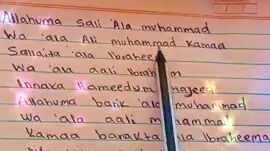 Allahuma sali 'Ala muhammad
Wa 'ala Ali muhammad kamaa
Sallaita 'ala Ibraheem
Wa 'ala aali Ibrahim
Innaka Hameedum majeed
Allahuma barik 'ala muhammad
Wa 'ala aali muhammad
Kamaa barakta 'ala Ibraheema